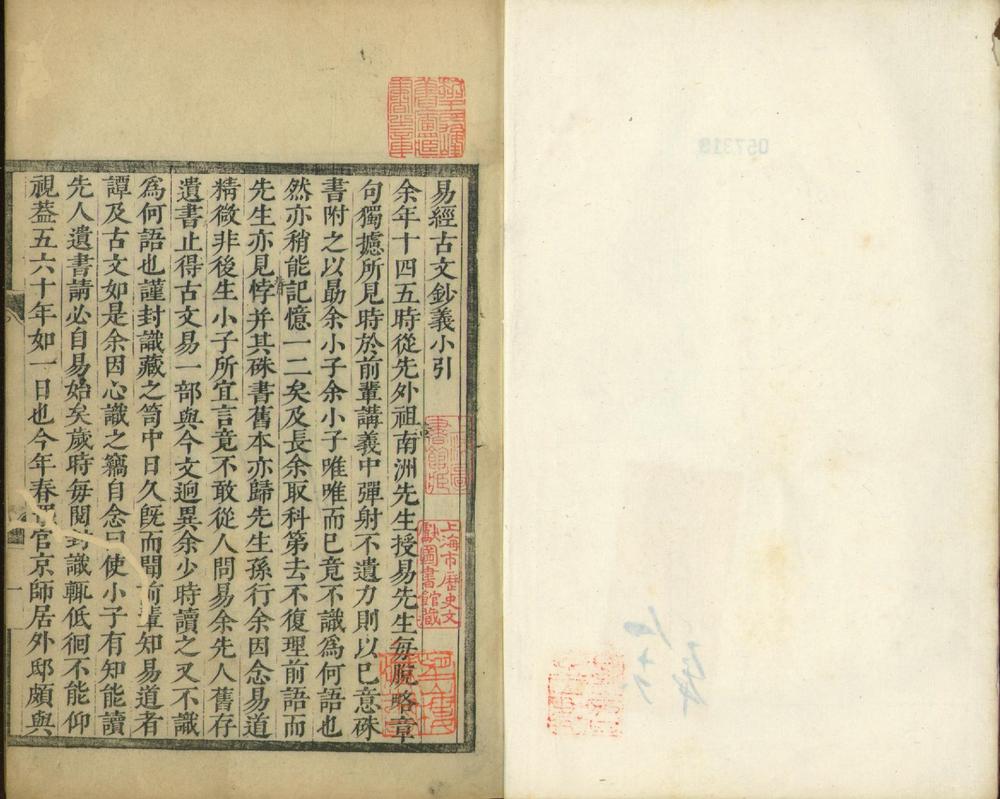 易經古文鈔義小引
余年十四五時從先外祖南洲先生授易先生每脫略章
句獨攄所見時於前輩講義中彈射不遺力則以已意硃
書附之以勗余小子余小子唯唯而已竟不識爲何語也
然亦稍能記憶一二矣及長余取科第去不復理前語而
先生亦見悖并其硃書舊本亦歸先生孫行余因念易道
精微非後生小子所宜言竟不敢從人問易余先人舊存
遺書止得古文易一部與今文逈異余少時讀之又不識
爲何語也謹封識藏之笥中日久旣而聞前輩知易道者
譚及古文如是余因心識之竊自念曰使小子有知能讀
先人遺書請必自易始矣歲時每閱封識輒低徊不能仰
視葢五六十年如一日也今年春官京師居外邸頗與
一
上海市歷史文
獻圖書館藏
057318